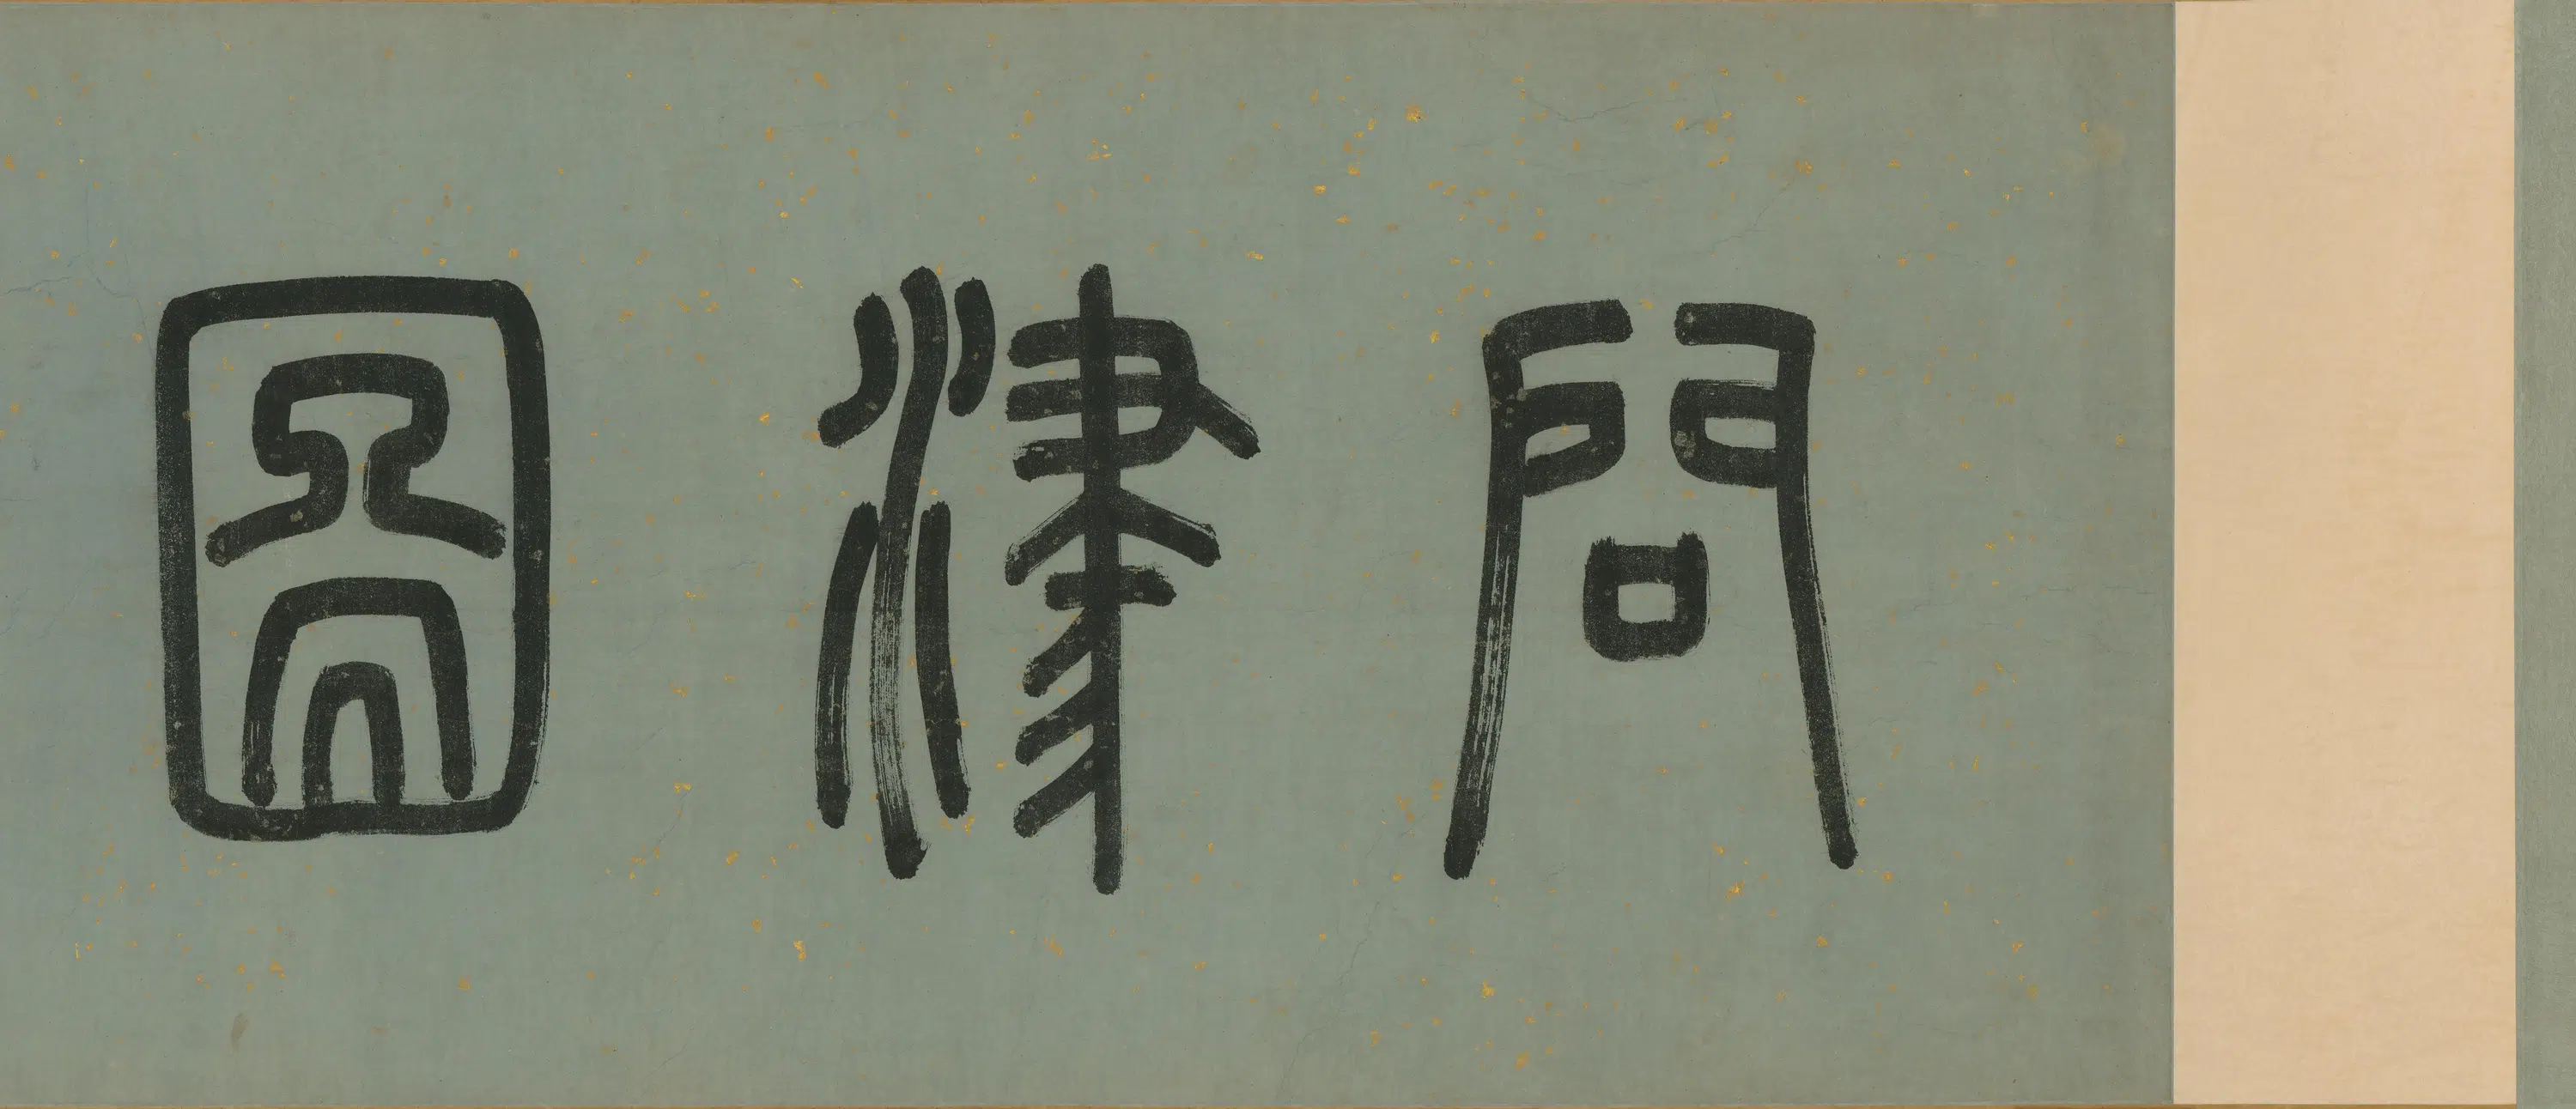 問津圖